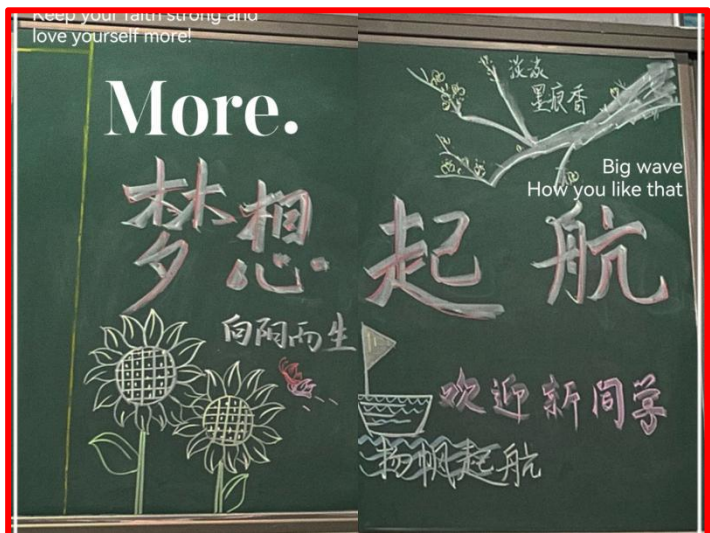 Keep your faith strong and
love yourself more!
More.
淡淡
墨痕香
Big wave
How you like that
梦想
起航
向阳而生
欢迎新同学
扬帆起航